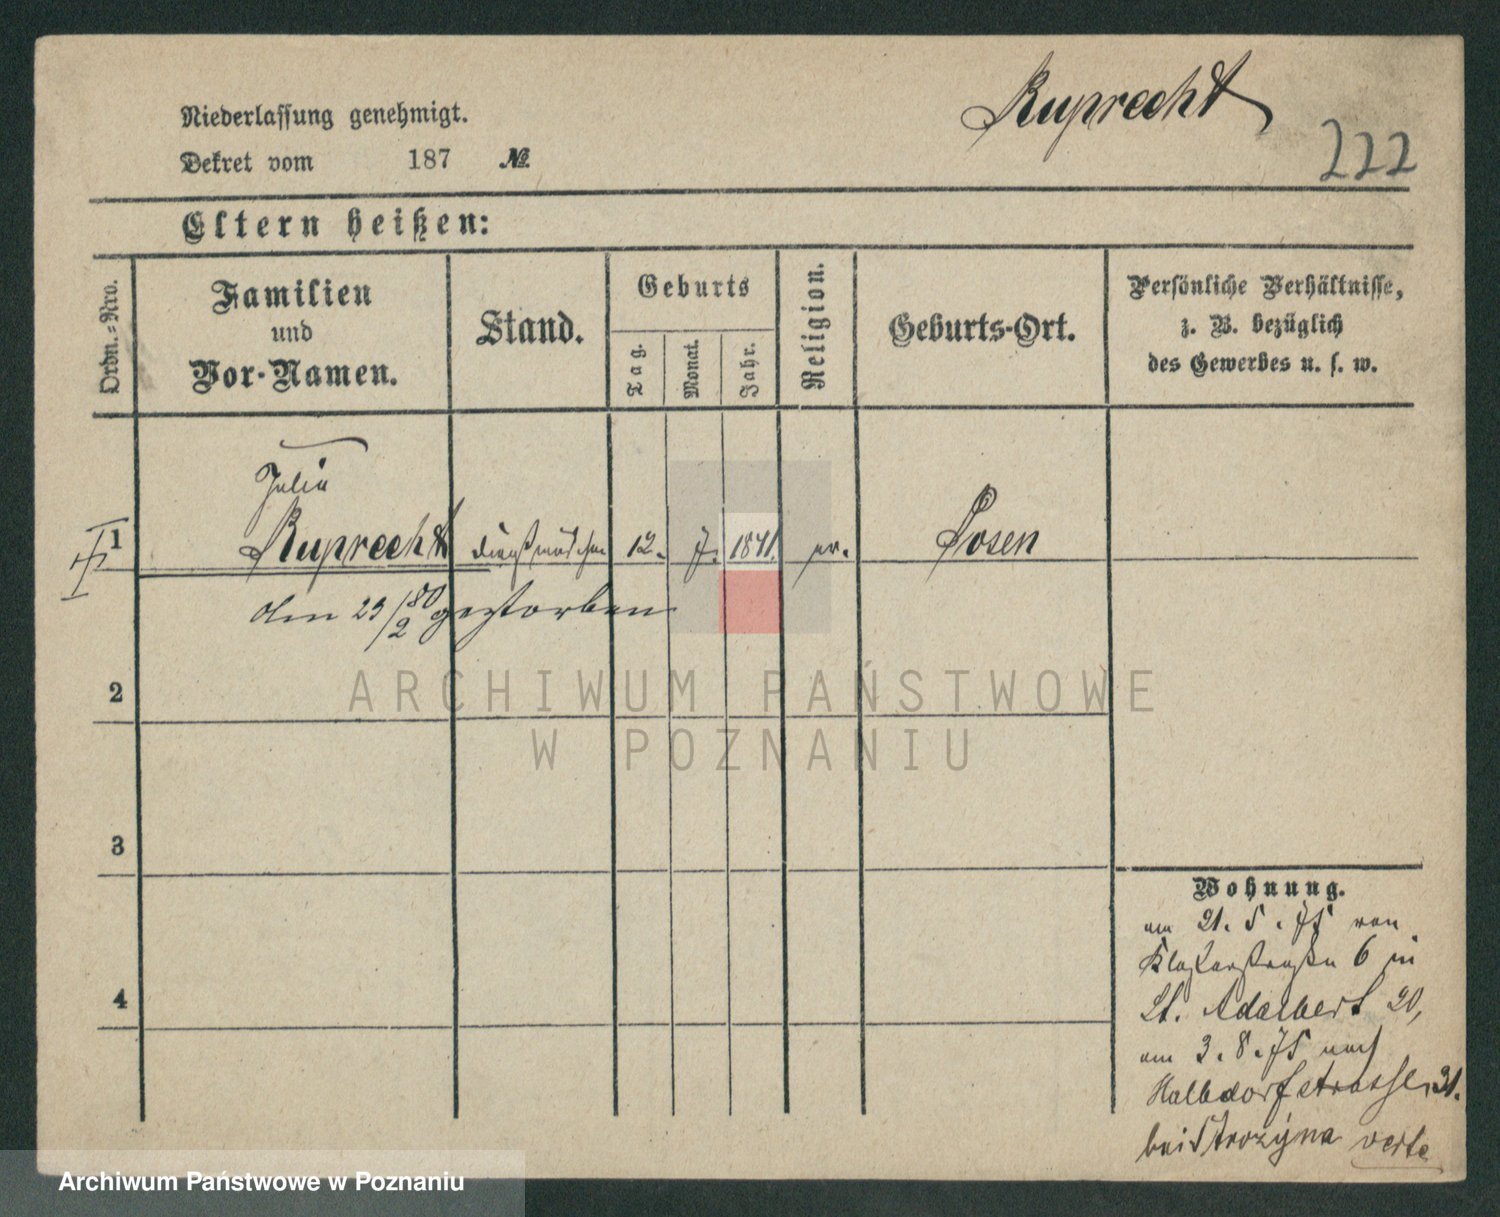 Ruprecht
222
Niederlassung genehmigt.
Dekret vom 187 №
Eltern heißen:
Ordn.-Nro.
Familien
und
Vor-Namen.
Stand.
Geburts
Tag.
Monat.
Jahr.
Religion.
Geburts-Ort.
Persönliche Verhältnisse,
z. B. bezüglich
des Gewerbes u. s. w.
Julia
1 Ruprecht Dienstmädchen 12. 7. 1841. ev. Posen
den 23/2 80 gestorben
2
3
4
Wohnung.
am 21. 5. 75 von
Klosterstraße 6 in
St. Adalbert 20,
am 3. 8. 75 nach
Halbdorfstrasse 31.
bei Strozyna verte
ARCHIWUM PAŃSTWOWE
W POZNANIU
Archiwum Państwowe w Poznaniu